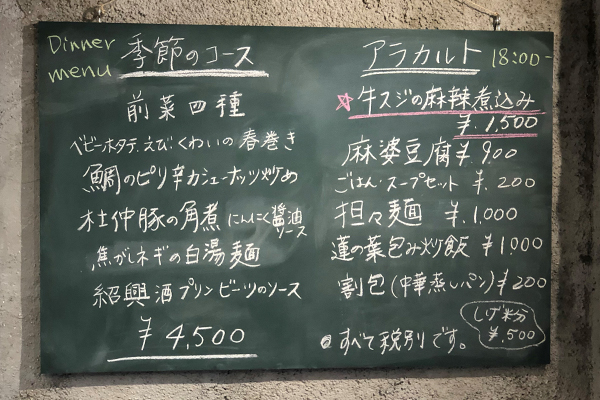 Dinner
menu
季節のコース
前菜四種
ベビーホタテ、えび、くわいの春巻き
鯛のピリ辛カシューナッツ炒め
杜仲豚の角煮 にんにく醤油
ソース
焦がしネギの白湯麺
紹興酒プリン ビーツのソース
¥4,500
アラカルト 18:00-
☆牛スジの麻辣煮込み
¥1,500
麻婆豆腐 ¥900
ごはん・スープセット ¥200
担々麺 ¥1,000
蓮の葉包み炒飯 ¥1000
割包(中華蒸しパン) ¥200
すべて税別です。
¥500